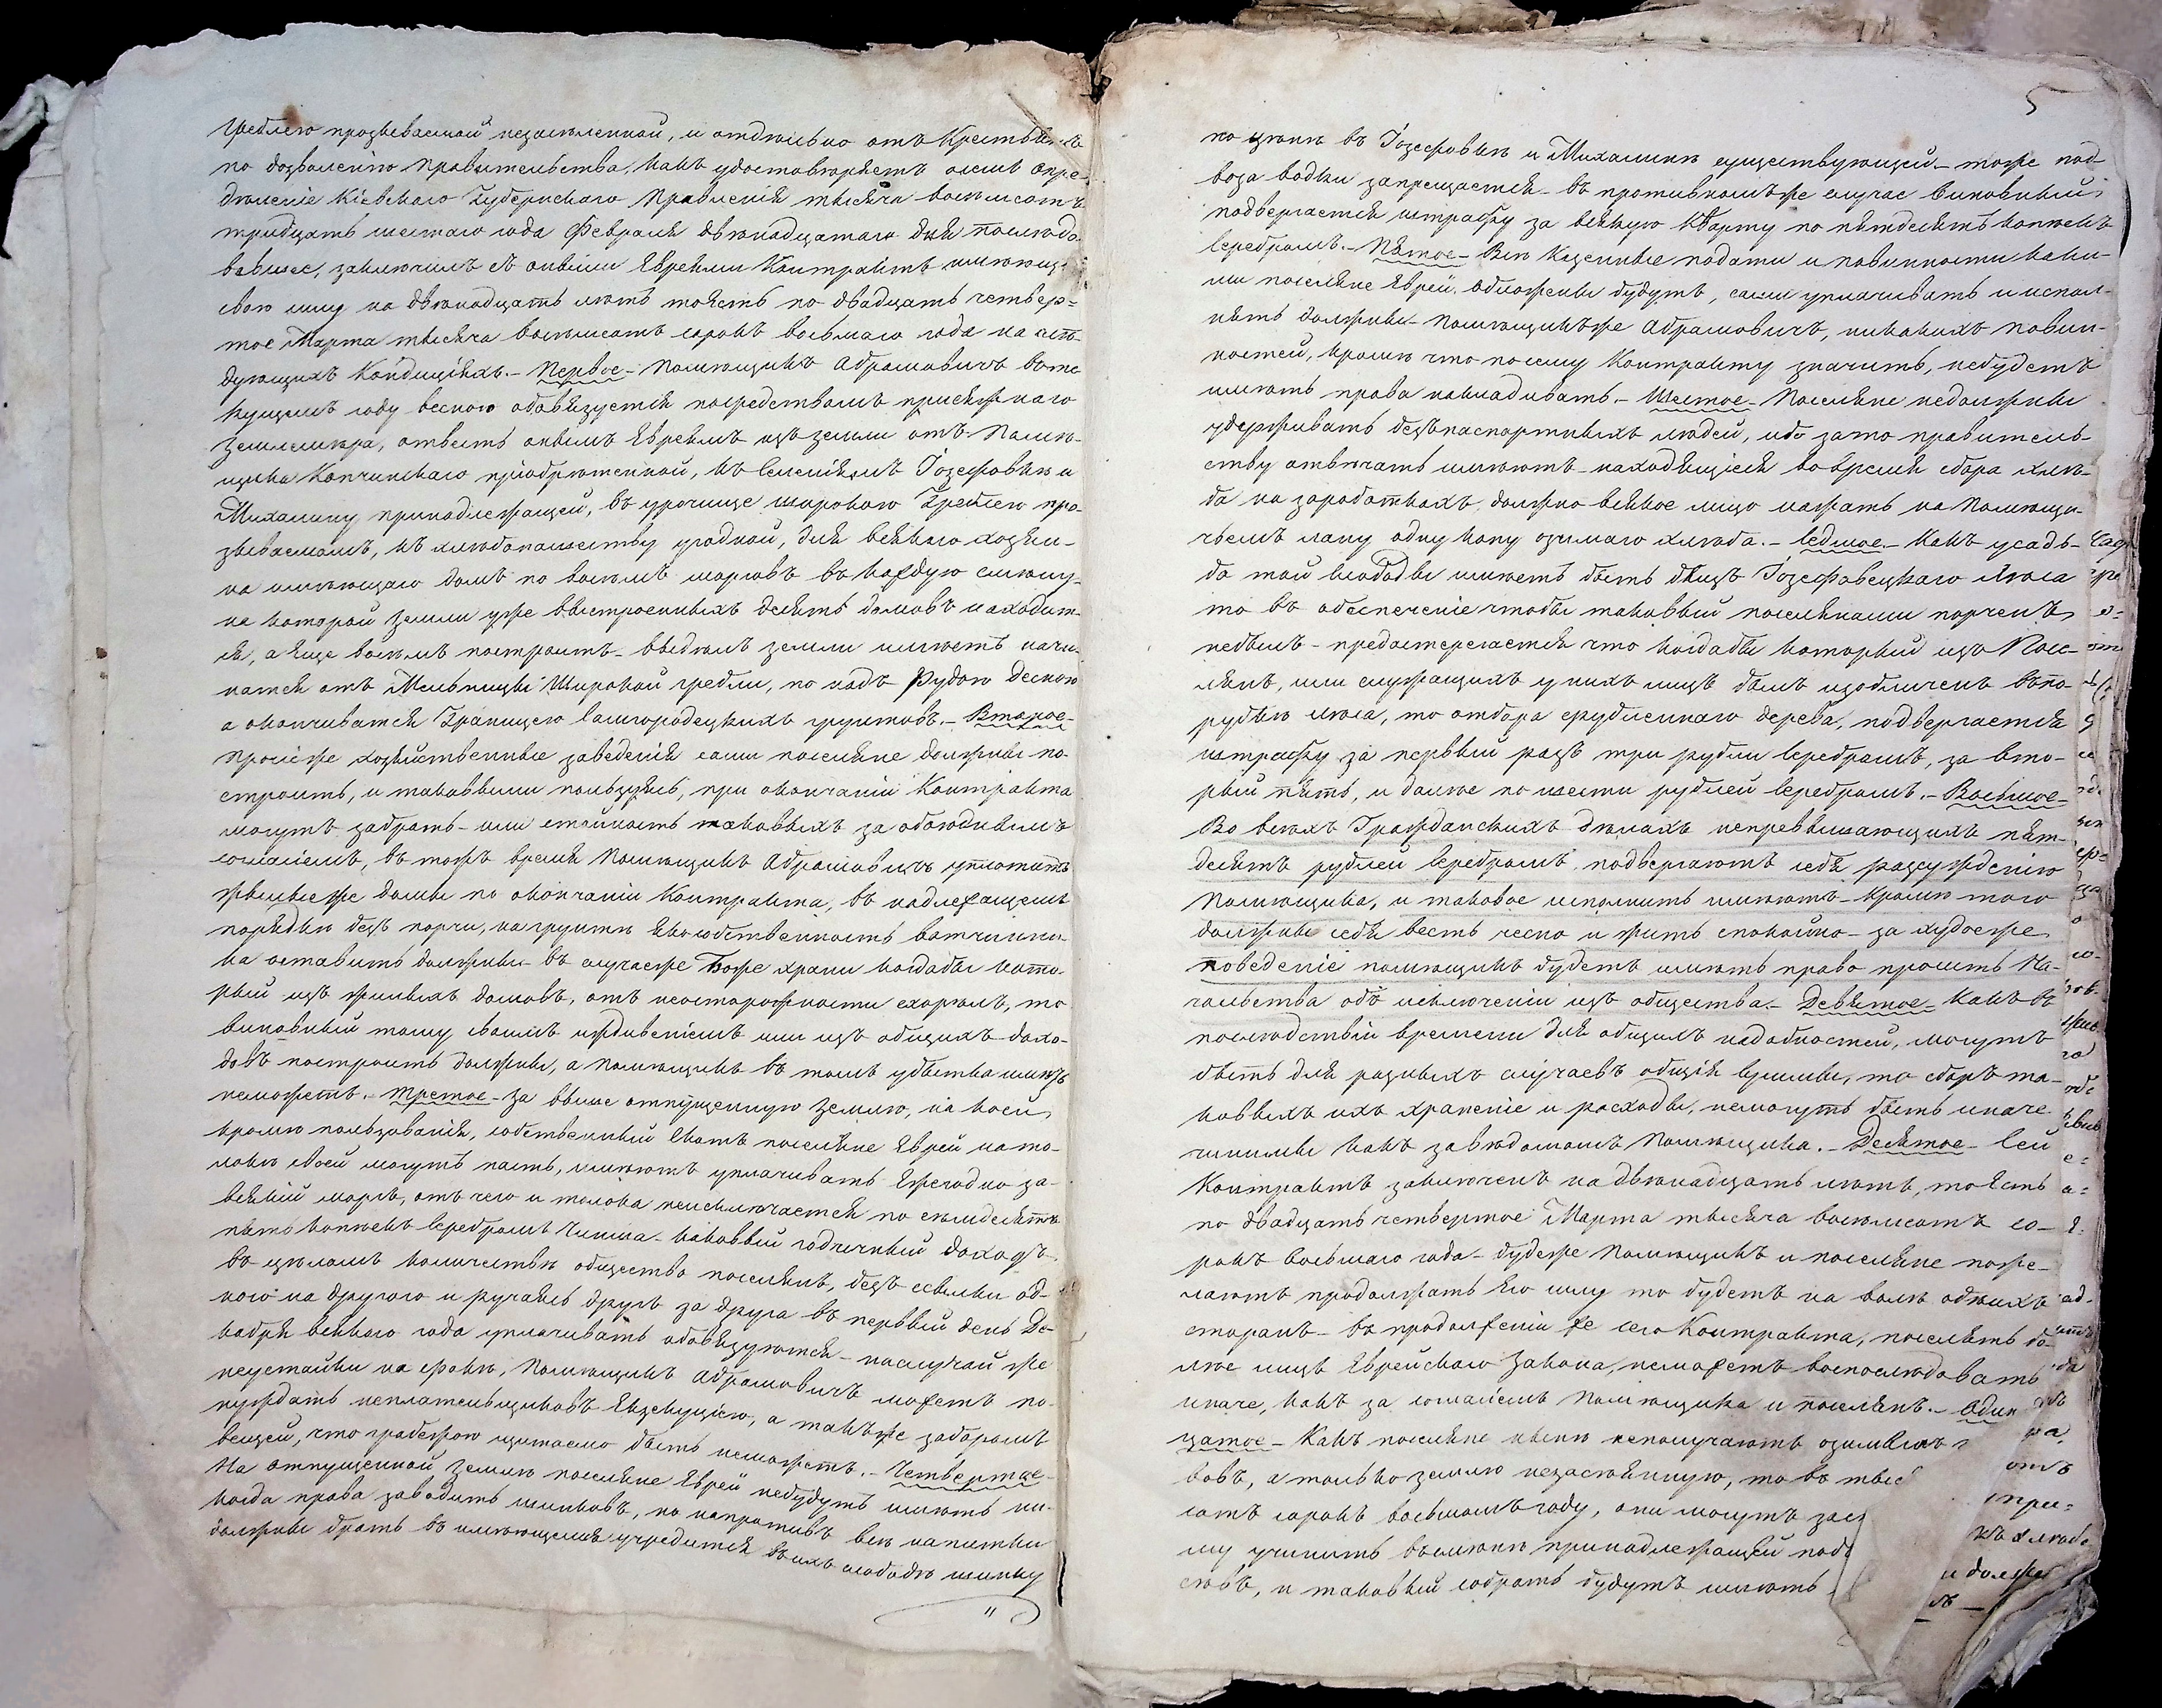 Греблею прозываемой незаселенной, и отдѣльно отъ Крестьянъ
по дозволенію Правительства, какъ удостовѣряетъ осемъ опре-
дѣленіе Кіевскаго Губернскаго Правленія тысяча восемьсотъ
тридцать шестаго года Февраля двѣнадцатаго дня послѣдо-
вавшее, заключилъ съ оными Евреями Контрактъ имѣющій
свою силу на двѣнадцать лѣтъ тоесть по двадцать четвер=
тое Марта тысяча восемьсотъ сорокъ восьмаго года на слѣ-
дующихъ Кондиціяхъ.- Первое- Помѣщикъ Абрамовичъ вте-
кущемъ году весною обовязуется посредствомъ присяжнаго
Землемѣра, отвесть онымъ Евреямъ изъ земли отъ Помѣ-
щика Копчинскаго пріобрѣтенной, къ селеніямъ Іозефовкѣ и
Михалину принадлежащей, въ урочище широкою Греблею про-
зываемомъ, къ хлѣбопашеству угодной, для всякаго хозяи-
на имѣющаго домъ по восемъ морговъ въ каждую смѣну,
на которой земли уже выстроенныхъ десять домовъ находит-
ся, а еще восемъ построитъ- выдѣлъ земли имѣетъ начи-
натся отъ Мельницы Широкой гребли, по надъ Рудою Десною
а окончиватся Границею Самгородецкихъ грунтовъ.- Второе-
Прочіеже хозяйственные заведенія сами поселяне должны по-
строить, и таковыми пользуясь, при окончаніи Контракта
могутъ забрать- или стойность таковыхъ за обоюднымъ
согласіемъ, въ тожъ время Помѣщикъ Абрамовичъ уплотитъ
жилыеже домы по окончаніи Контракта, въ надлежащемъ
порядкѣ безъ порчи, нагрунтѣ яко собственность вотчинни-
ка оставить должны- въ случаеже Боже храни когдабы кото-
рый изъ жилыхъ домовъ, отъ неосторожности сгорѣлъ, то
виновный тому своимъ иждивеніемъ или изъ общихъ дохо-
довъ построить должны, а помѣщикъ въ томъ убытка имѣть
неможетъ.- Третое- за выше отпущенную землю, на коей
кромѣ пользованія, собственный скотъ поселяне Евреи нато-
локѣ своей могутъ пасть, имѣютъ уплачивать Ежегодно за-
всякій моргъ, отъ чего и толока неисключается по семдесятъ
пять копѣекъ серебромъ Чинша- каковый годичный доходъ
въ цѣломъ количествѣ общество поселянъ, безъ ссылки од-
ного на другого и ручаясь другъ за друга въ первый день Де-
кабря всякаго года уплачивать обовязуются- наслучай же
неустойки на срокѣ, Помѣщикъ Абрамовичъ можетъ по-
нуждать неплательщиковъ Екзекуціею, а такъже заборомъ
вещей, что грабежою щитаемо быть неможетъ.- Четвертое-
На отпущенной землѣ поселяне Евреи небудутъ имѣть ни-
когда права заводить шинковъ, но напротивъ всѣ напитки
должны брать въ имѣющемся учредится въихъ слободѣ шинку
5
по цѣнѣ въ Іозефовкѣ и Михалинѣ существующей- тоже под-
воза водки запрещается- въ противномъже случае виновный
подвергается штрафу за всякую Кварту по пятдесятъ копѣекъ
серебромъ.- Пятое- Всѣ Казенные подати и повинности каки-
ми поселяне Евреи обложены будутъ, сами уплачивать и испол-
нять должны- Помѣщикъже Абрамовичъ, никакихъ повин-
ностей, кромѣ что по сему Контракту значитъ, небудетъ
имѣть права накладивать.- Шестое- Поселяне недолжны
удерживать безъпаспортныхъ людей, ибо зато правитель-
ству отвѣчать имѣютъ- находящіеся во время сбора хлѣ-
ба на заработкахъ, должно всякое лицо нажать на Помѣщи-
чьемъ лану одну копу озимаго хлѣба.- Седмое- Какъ усадь-
ба той слободы имѣетъ быть близъ Іозефовецкаго Лѣса
то въ обеспеченіе чтобы таковый поселянами порченъ
небылъ- предостерегается что когдабы который изъ Посе-
лянъ, или служащихъ у нихъ лицъ былъ изобличенъ въпо-
рубкѣ лѣса, то отбора срубленнаго дерева, подвергается
штрафу за первый разъ три рубли серебромъ, за вто-
рый пять, и далѣе по шести рублей серебромъ.- Восьмое-
Во всѣхъ Гражданскихъ дѣлахъ непревышающихъ пят-
десятъ рублей серебромъ, подвергаютъ себя разсужденію
Помѣщика, и таковое исполнить имѣютъ- Кромѣ того
должны себя весть чесно и жить спокойно- за худоеже
поведеніе помѣщикъ будетъ имѣть право просить На-
чальства объ исключеніи изъ общества.- Девятое- Какъ въ
послѣдствіи времени для общихъ надобностей, могутъ
быть для разныхъ случаевъ общія суммы, то сборъ та-
ковыхъ ихъ храненіе и расходы, немогутъ быть иначе
чинимы какъ завѣдомомъ Помѣщика.- Десятое- Сей
Контрактъ заключенъ на двѣнадцать лѣтъ, тоесть
по двадцать четвертое Марта тысяча восемьсотъ со-
рокъ восьмаго года- будеже Помѣщикъ и поселяне поже-
лаютъ продолжать Его силу то будетъ на волѣ обѣихъ
сторонъ- въ продолженіи же сего Контракта, поселять бо-
лѣе лицъ Еврейскаго Закона, неможетъ воспослѣдовать
иначе, какъ за согласіемъ Помѣщика и поселянъ.- Один
цатое- Какъ поселяне нынѣ неполучаютъ озимыхъ
вовъ, а только землю незасѣянную, то въ тыс
сотъ сорокъ восьмомъ году, они могутъ зас
му учинить въсмѣнѣ принадлежащей под
сѣвъ, и таковый собрать будутъ имѣть